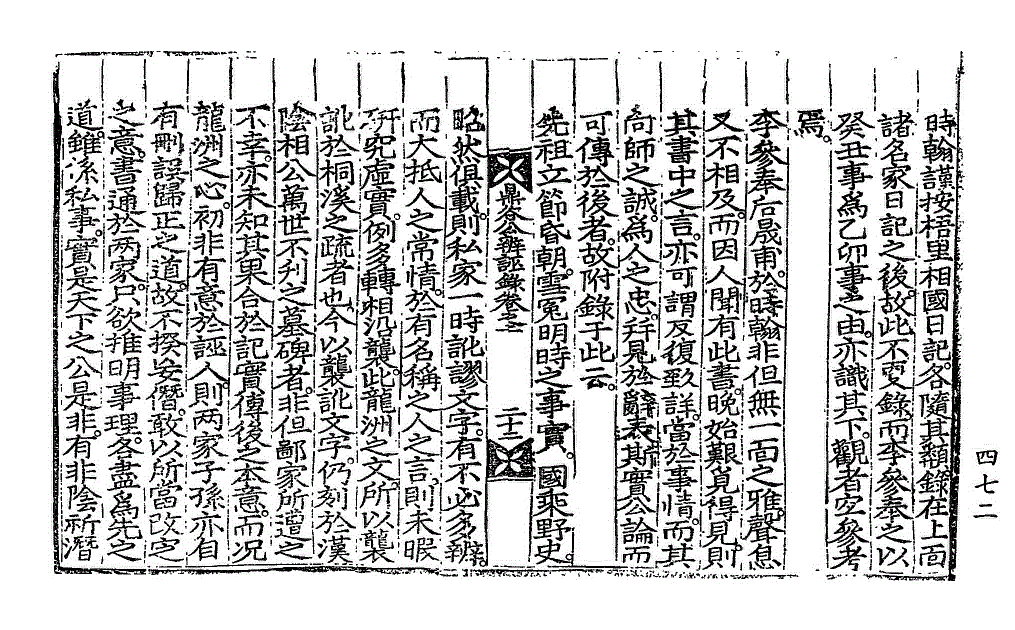 時翰謹按梧里相國日記各隨其類錄在上面
諸名家日記之後故此不更錄而李參奉之以
癸丑事爲乙卯事之由亦識其下觀者宜參考
焉
李參奉后晟甫於時翰非但無一面之雅聲息
又不相及而因人聞有此書晩始艱覓得見則
其書中之言亦可謂反復致詳當於事情而其
向師之誠爲人之忠幷見於辭表斯實公論而
可傳於後者故附錄于此云
先祖立節昏朝雪冤明時之事實國乘野史
鼎谷公辨誣錄卷之
二十二
昭然俱載則私家一時訛謬文字有不必多辨
而大抵人之常情於有名稱之人之言則未暇
硏究虛實例多轉相沿襲此龍洲之文所以襲
訛於桐溪之疏者也今以襲訛文字仍刻於漢
陰相公萬世不刋之墓碑者非但鄙家所遭之
不幸亦未知其果合於記實傳後之本意而況
龍洲之心初非有意於誣人則兩家子孫亦自
有刪誤歸正之道故不揆妄僭敢以所當改定
之意書通於兩家只欲推明事理各盡爲先之
道雖係私事實是天下之公是非有非陰祈潛
四七二